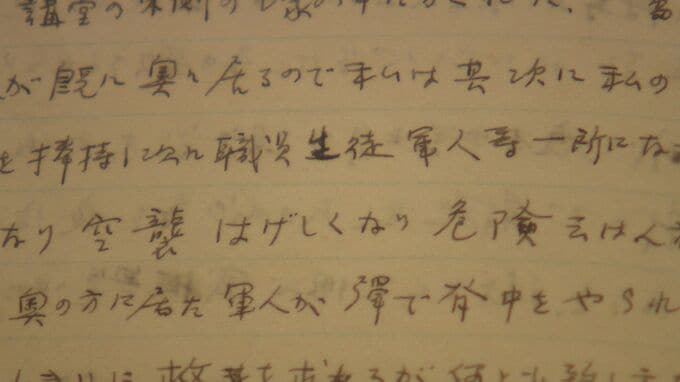 講堂の東側の
が既に奥に居るので私は其次に私の
を捧持し次に職員生徒軍人等一所にな
なり空襲はげしくなり危険云はん
奥の方に居た軍人が弾で背中をやられ
救基を求めるが何とも致し